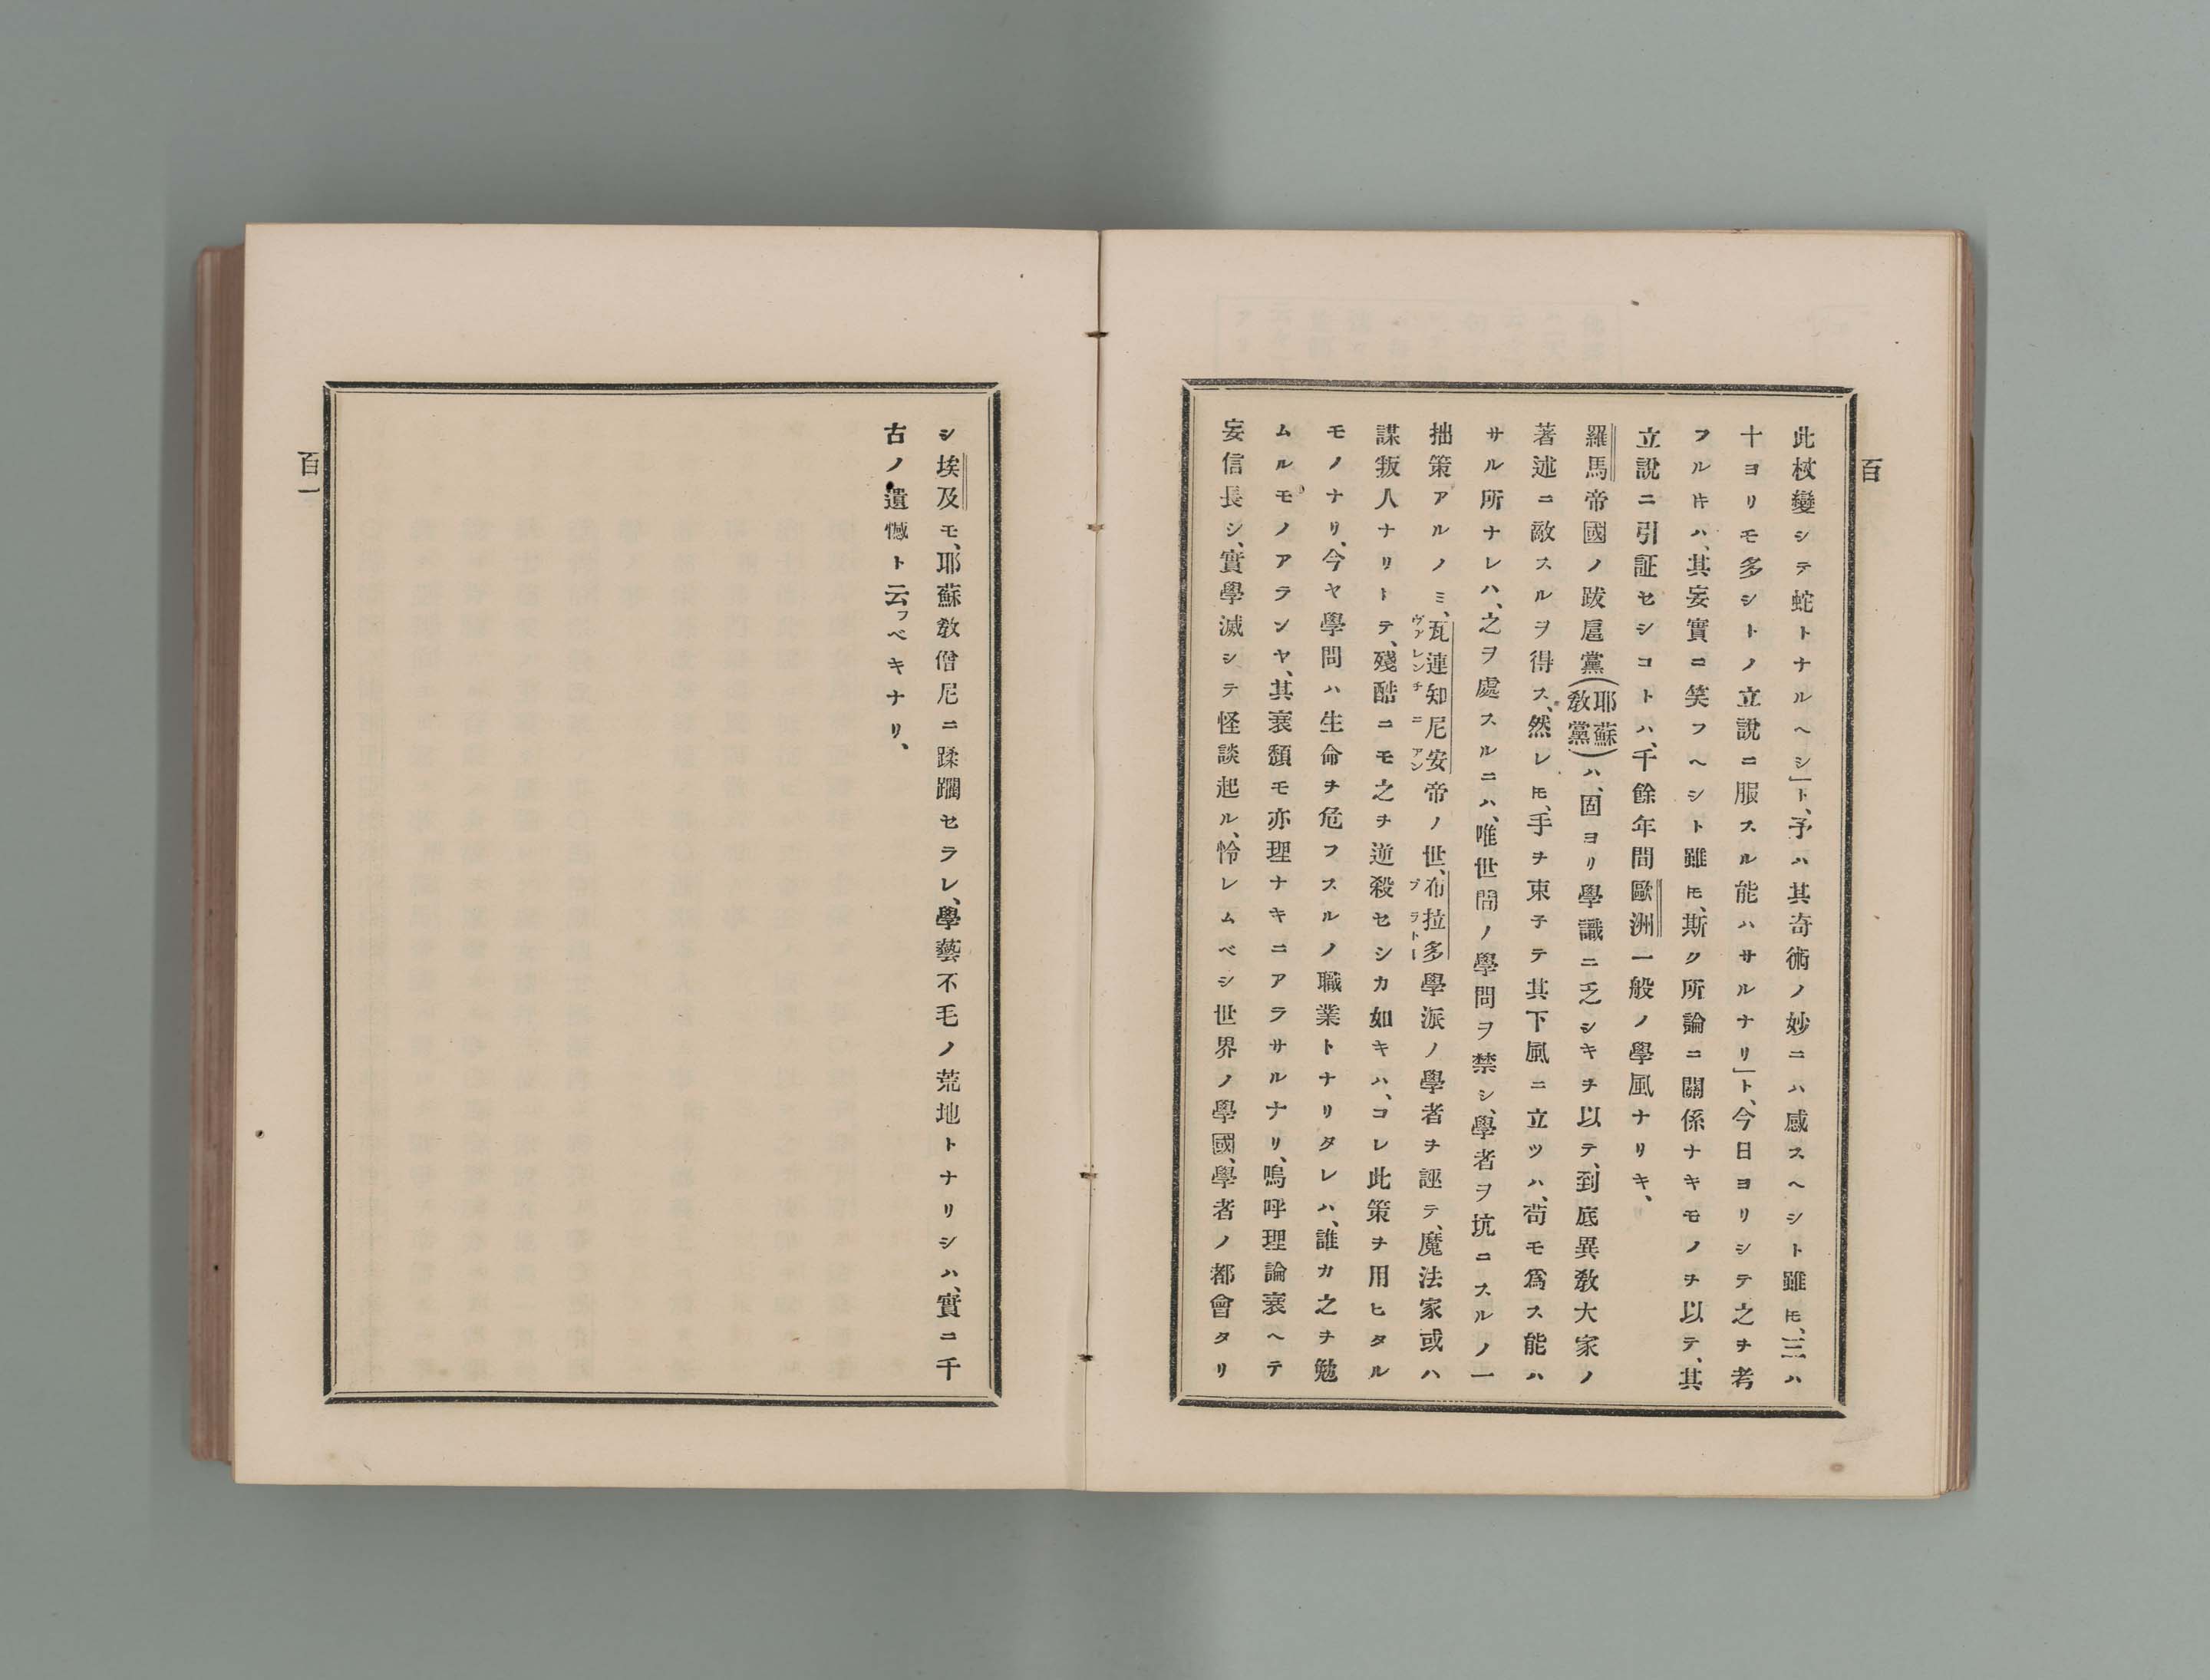 百
此杖變シテ蛇トナルヘシ」ト、予ハ其奇術ノ妙ニハ感スヘシト雖𪜈、三ハ
十ヨリモ多シトノ立說ニ服スル能ハサルナリ」ト、今日ヨリシテ之ヲ考
フル𪜈ハ、其妄實ニ笑フヘシト雖𪜈、斯ク所論ニ關係ナキモノヲ以テ、其
立說ニ引証セシコトハ、千餘年間歐洲一般ノ學風ナリキ、
羅馬帝國ノ跋扈黨(耶蘇敎黨)ハ、固ヨリ學識ニ乏シキヲ以テ、到底異敎大家ノ
著述ニ敵スルヲ得ス、然レ𪜈、手ヲ束子テ其下風ニ立ツハ、苟モ爲ス能ハ
サル所ナレハ、之ヲ處スルニハ、唯世間ノ學問ヲ禁シ、學者ヲ坑ニスルノ一
拙策アルノミ、瓦連知尼安帝ノ世、布拉多學派ノ學者ヲ誣テ、魔法家或ハ
ヴァレンチニアン
プラトー
謀叛人ナリトテ、殘酷ニモ之ヲ逆殺セシカ如キハ、コレ此策ヲ用ヒタル
モノナリ、今ヤ學問ハ生命ヲ危フスルノ職業トナリタレハ、誰カ之ヲ勉
ムルモノアランヤ、其衰頽モ亦理ナキニアラサルナリ、嗚呼理論衰ヘテ
妄信長シ、實學滅シテ怪談起ル、怜レムベシ世界ノ學國、學者ノ都會タリ
シ埃及モ、耶蘇敎僧尼ニ蹂躙セラレ、學藝不毛ノ荒地トナリシハ、實ニ千
古ノ遺憾ト云フベキナリ、
百一